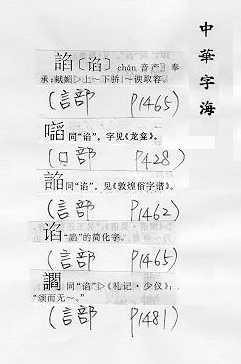 中華字海
諂〔谄〕chǎn 音产。奉
承;献媚▷上~下骄|~谀取容。
(言部 P1465)
同“谄”,字见《龙龛》。
(口部 P428)
同“谄”,见《敦煌俗字谱》。
(言部 P1462)
谄“諂”的简化字。
(言部 P1465)
讇同“谄”▷《礼记·少仪》:
“颂而无~。”
(言部 P1481)